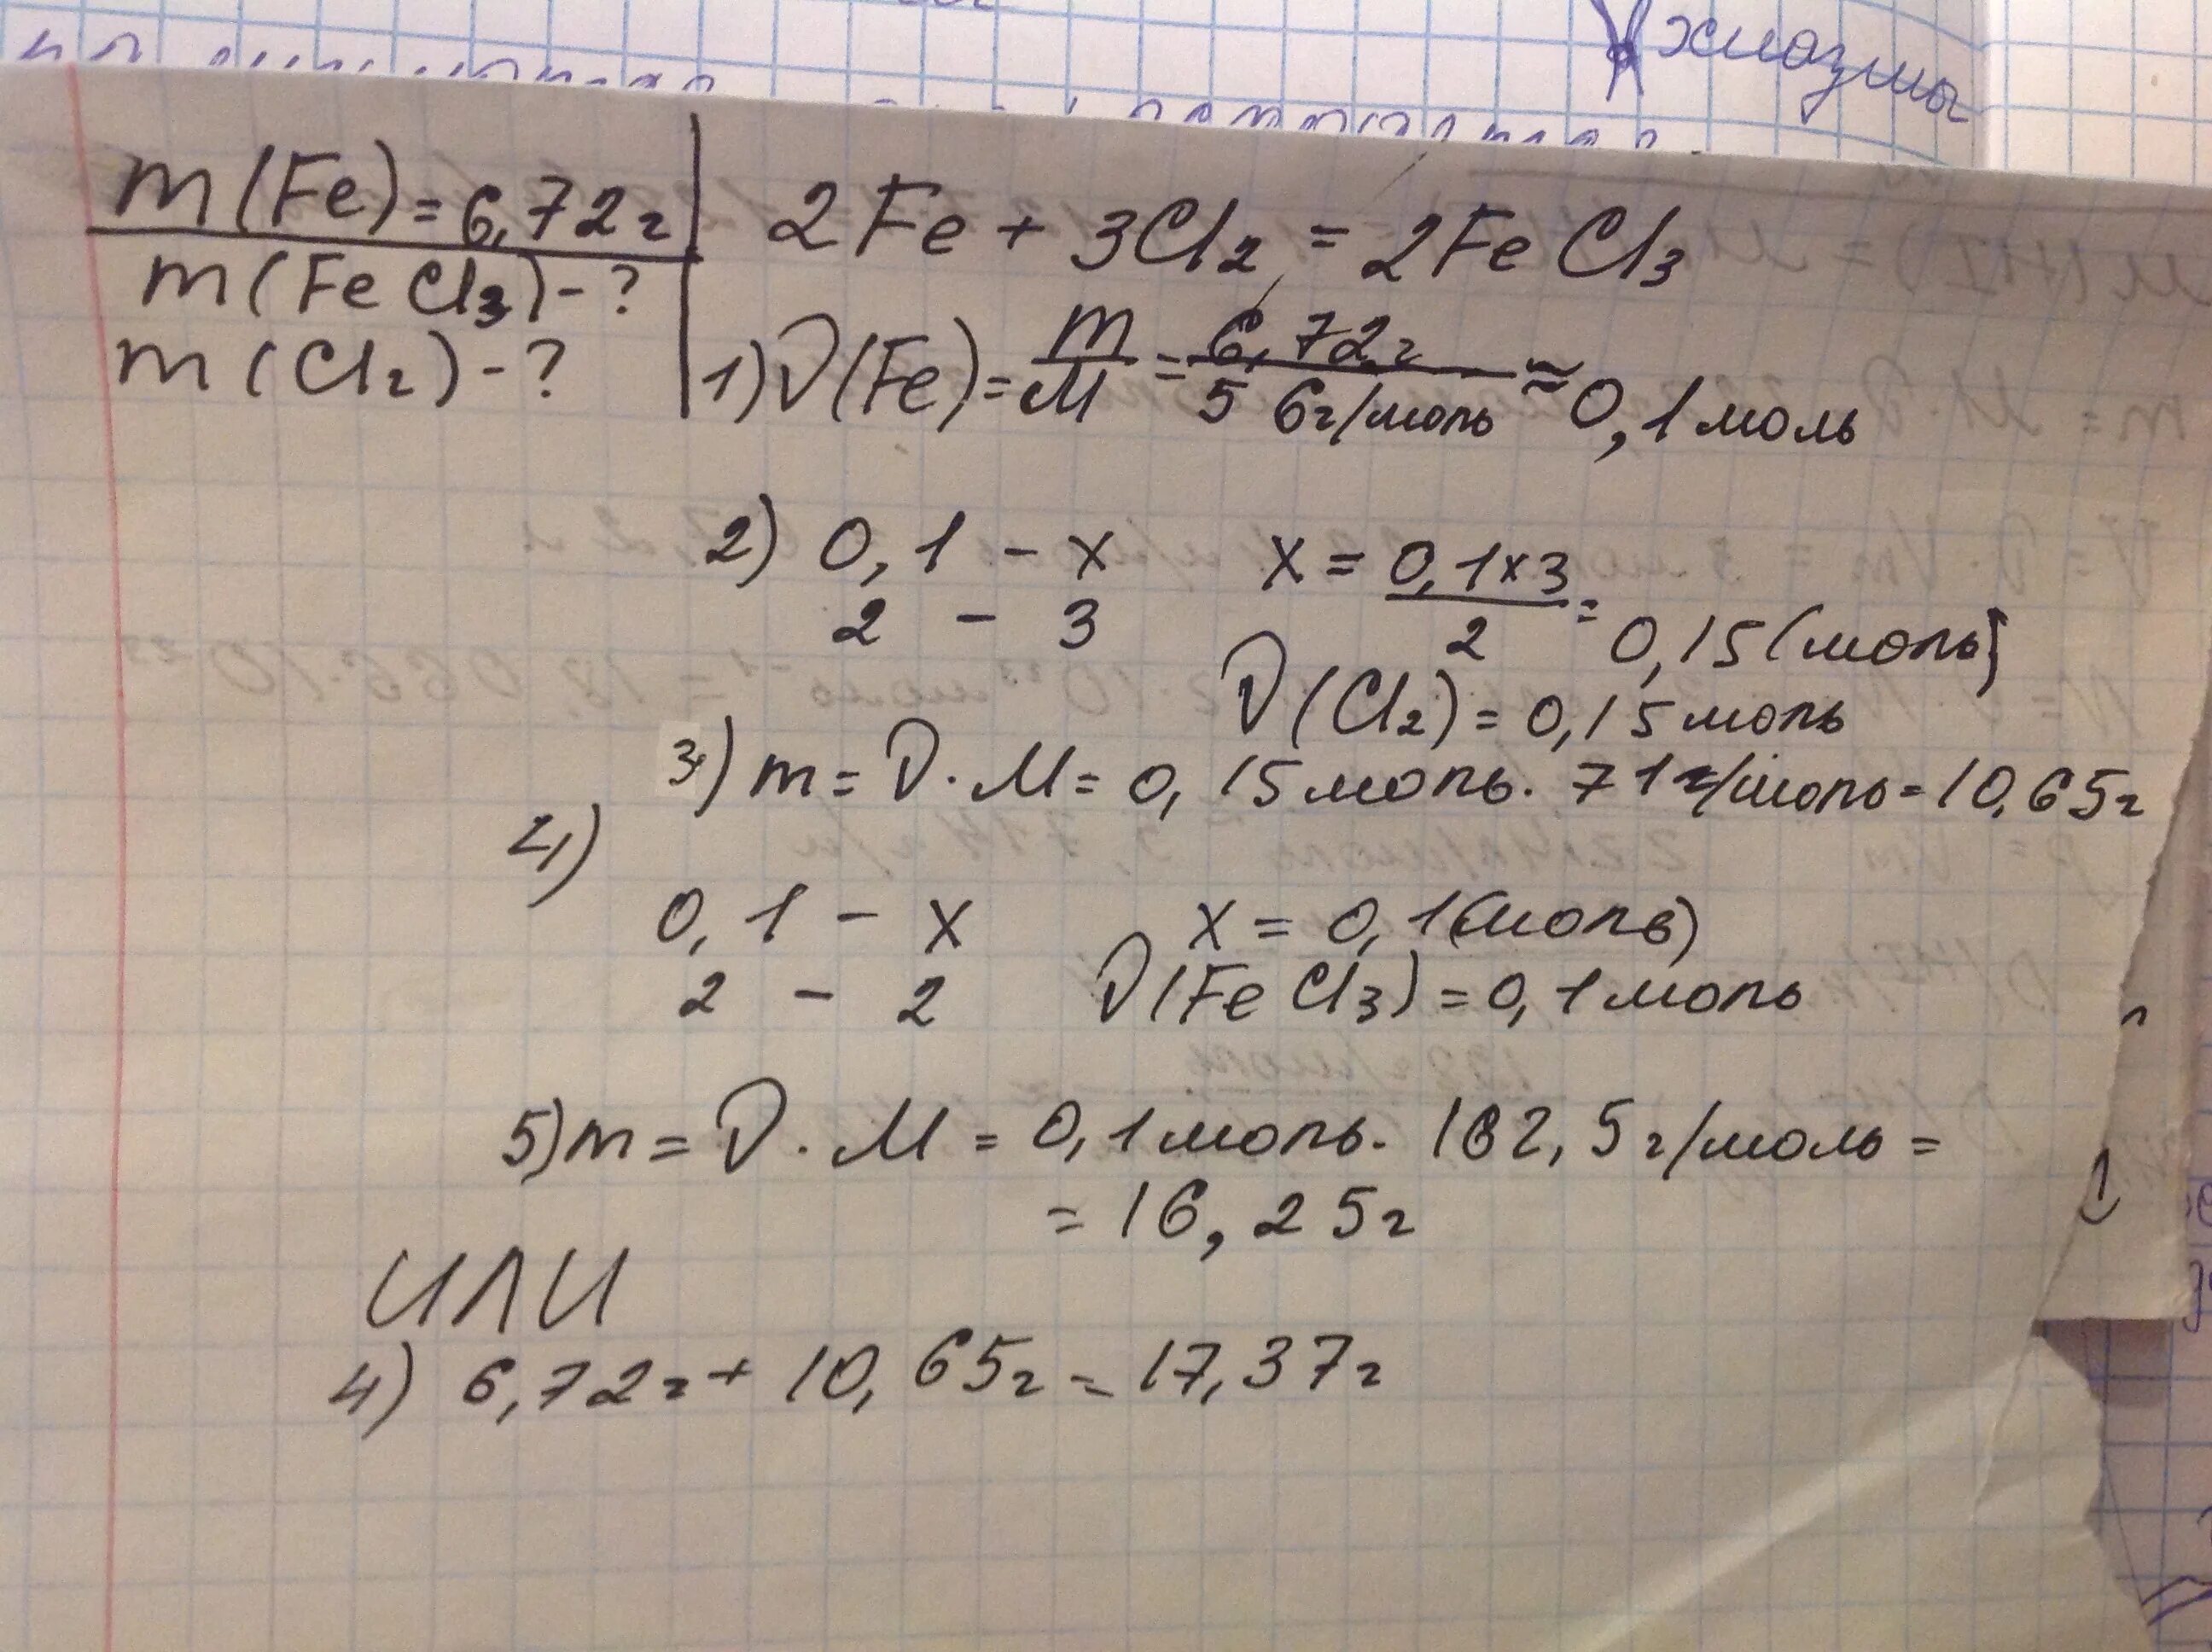 хиазмы
m(Fe)=6,72г
m(FeCl3)-?
m(Cl2)-?
2Fe + 3Cl2 = 2FeCl3
1) ν(Fe) = m/M = 6,72г/56г/моль ≈ 0,1 моль
2) 0,1 - x
2 - 3
x = 0,1×3/2 = 0,15(моль)
ν(Cl2) = 0,15 моль
3) m = ν · M = 0,15 моль · 71г/моль = 10,65г
4)
0,1 - x
2 - 2
x = 0,1(моль)
ν(FeCl3) = 0,1 моль
5) m = ν · M = 0,1 моль · 162,5г/моль =
= 16,25г
ИЛИ
4) 6,72г + 10,65г = 17,37г